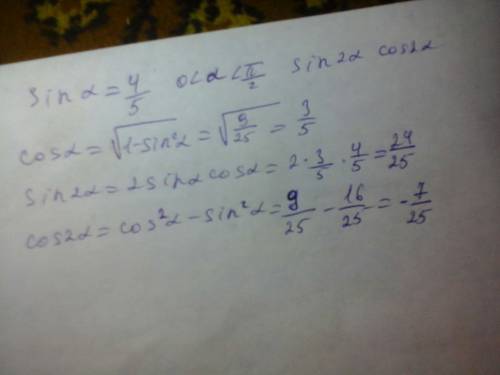 sin α = 4/5   0<α<π/2   sin2α cos2α
cosα = √(1-sin²α) = √(9/25) = 3/5
sin2α = 2sinα cosα = 2·3/5·4/5 = 24/25
cos2α = cos²α - sin²α = 9/25 - 16/25 = -7/25